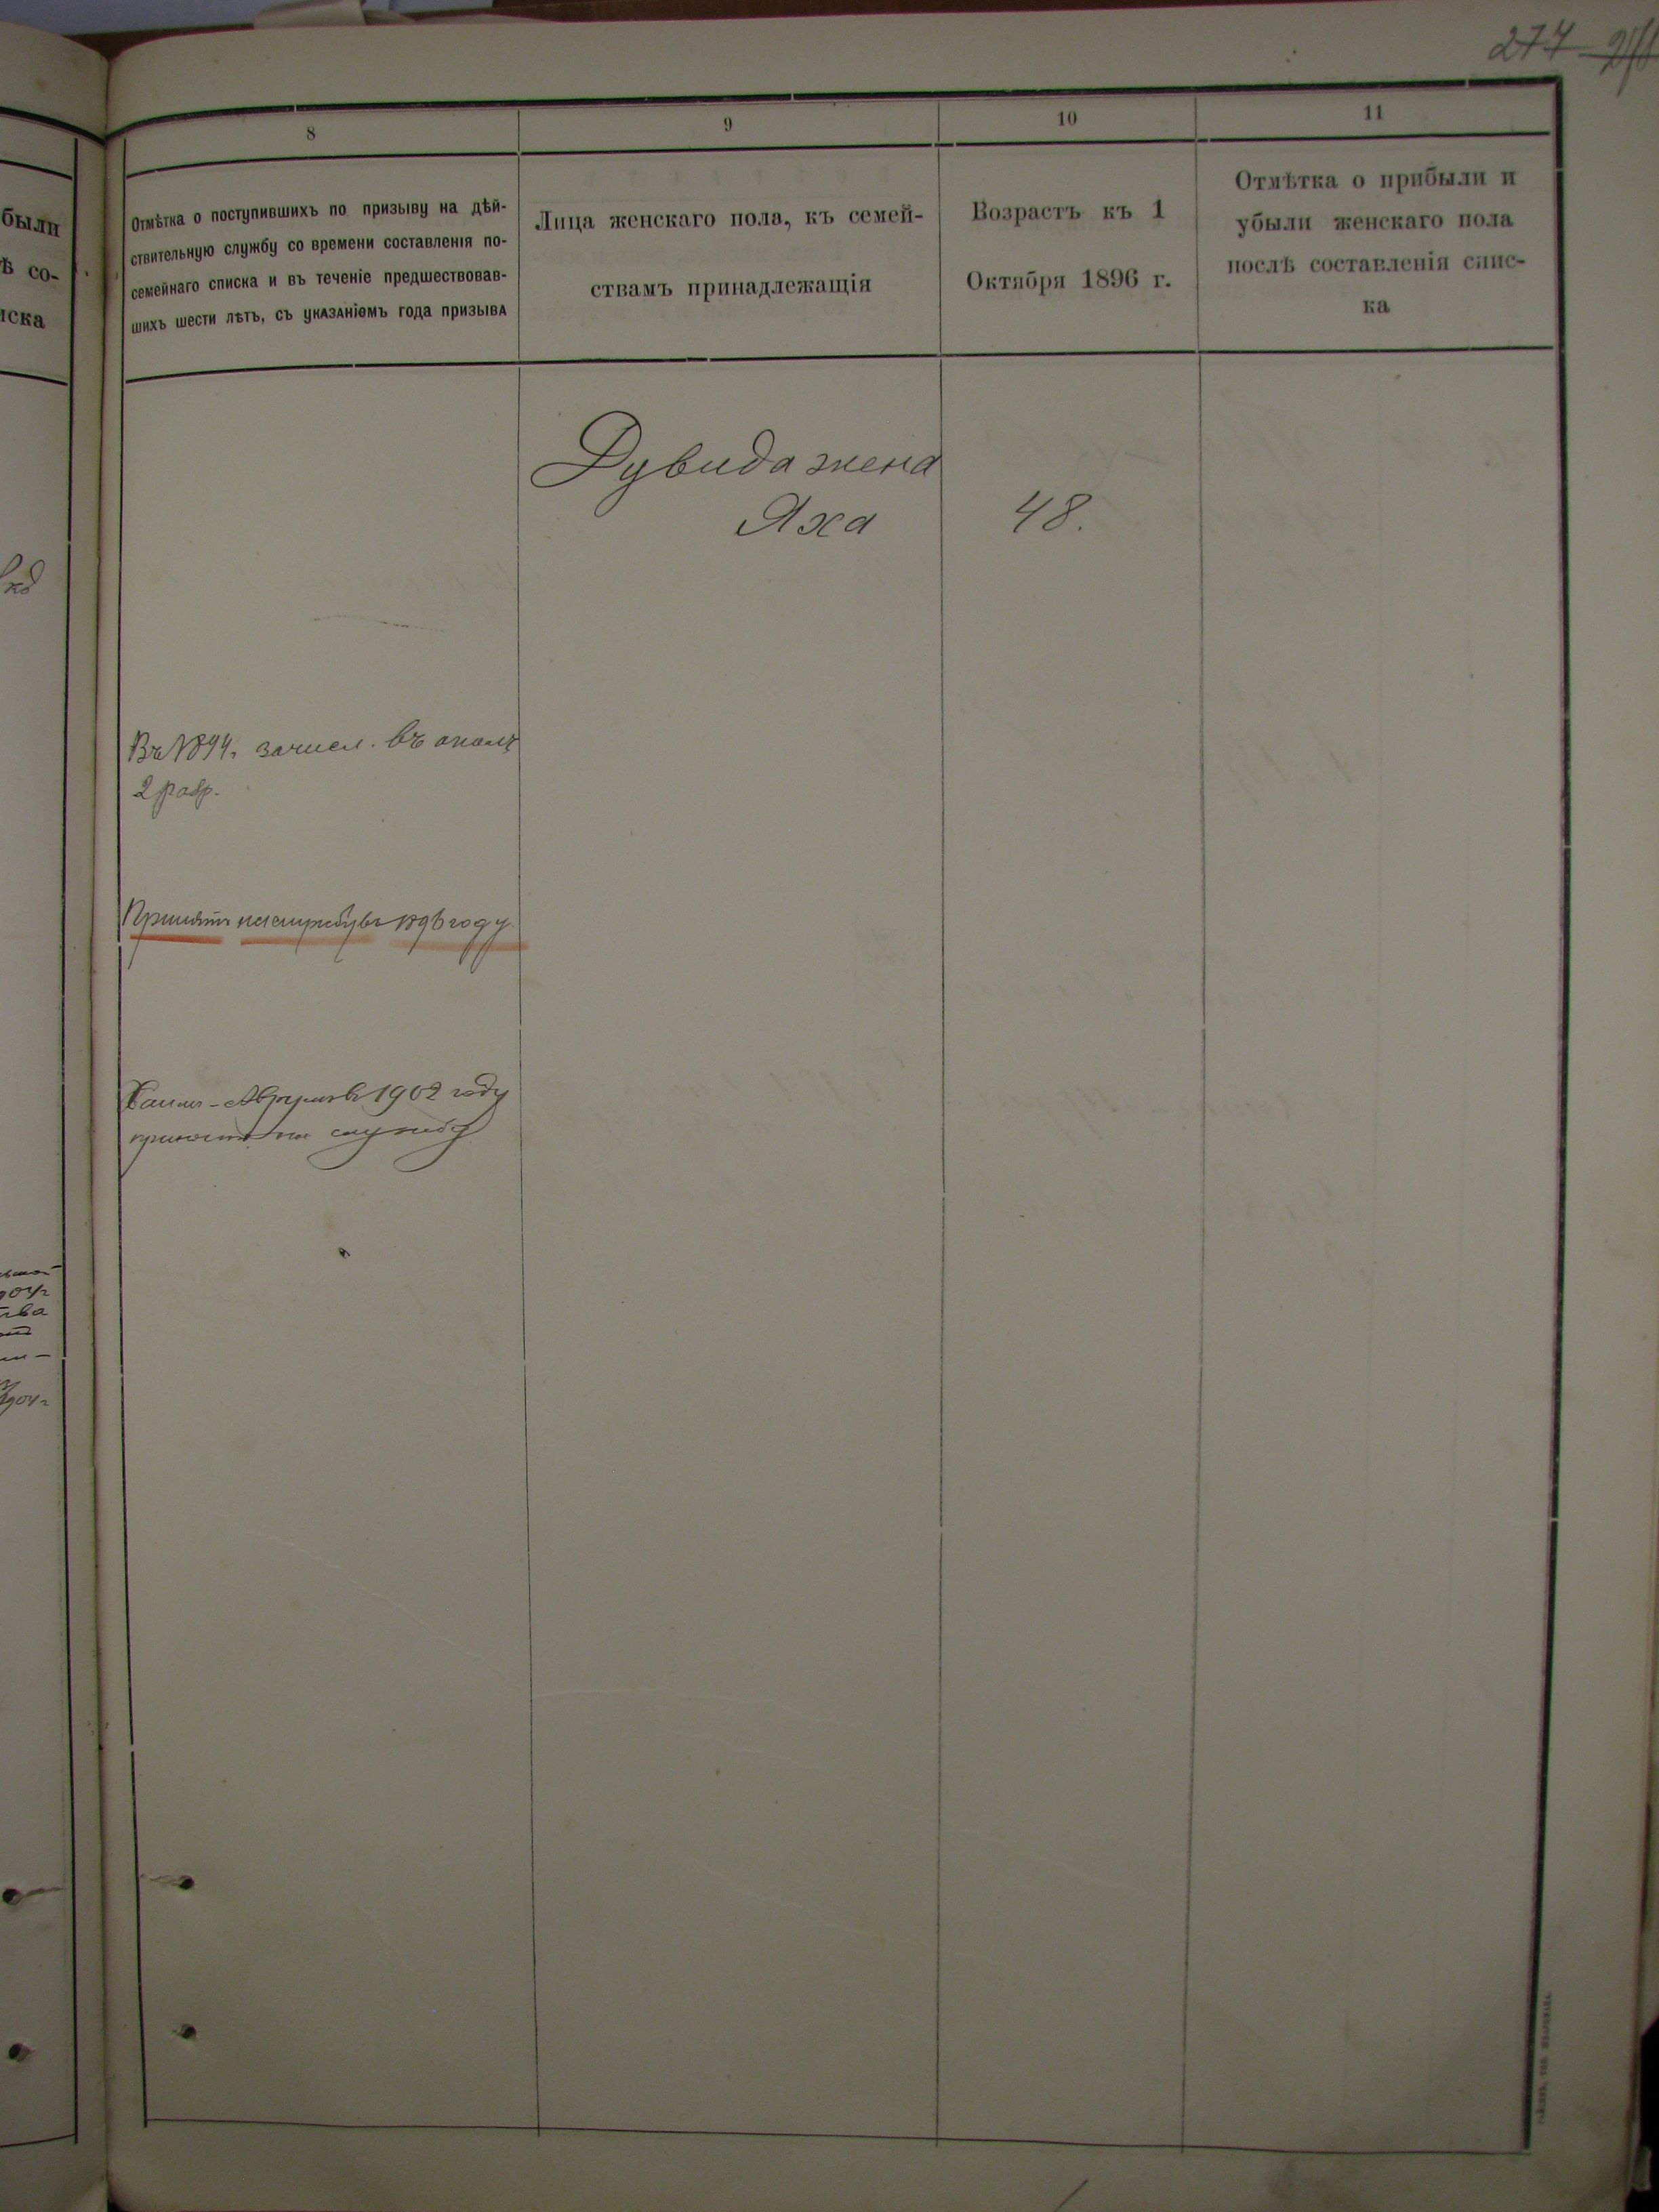 277
8
9
10
11
Отмѣтка о поступившихъ по призыву на дѣй-
ствительную службу со времени составленія по-
семейнаго списка и въ теченіе предшествовав-
шихъ шести лѣтъ, съ указаніемъ года призыва
Лица женскаго пола, къ семей-
ствамъ принадлежащія
Возрастъ къ 1
Октября 1896 г.
Отмѣтка о прибыли и
убыли женскаго пола
послѣ составленія спис-
ка
были
ѣ со-
иска
Дувида жена
Яха
48.
Въ 1894. зачисл. въ ополч
2 разр.
Принятъ на службу въ 1896 году.
1902 году
принятъ на службу